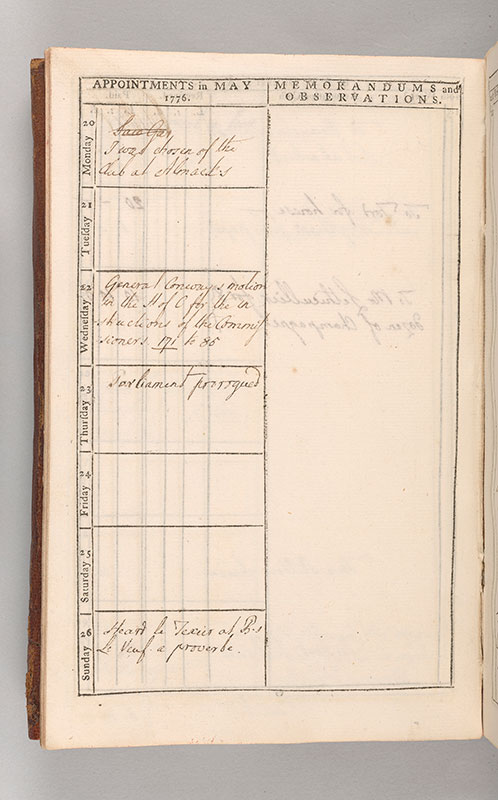 APPOINTMENTS in MAY
1776.
MEMORANDUMS and
OBSERVATIONS.
Monday 20
I was chosen of the
Club at Almack's
Tueſday 21
Wedneſday 22
General Conways motion
in the H of C for the in
structions of the Commiſ
sioners 171 to 85
Thurſday 23
Parliament prorogued
Friday 24
Saturday 25
Sunday 26
Heard le Texier at
Le Veuf a proverbe.